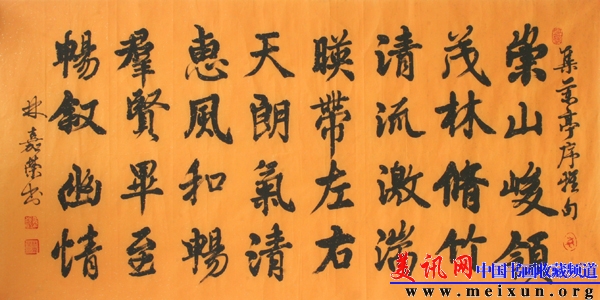 集蘭亭序句
崇山峻領
茂林脩竹
清流激湍
暎帶左右
天朗氣清
惠風和暢
羣賢畢至
暢叙幽情
林嘉榮书
美讯网 中国书画收藏频道
www.meixun.org